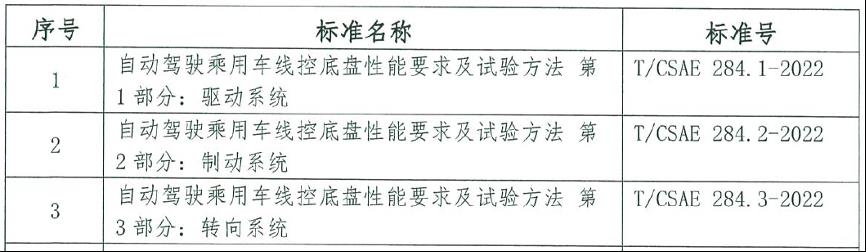 序号 标准名称 标准号
1 自动驾驶乘用车线控底盘性能要求及试验方法 第 T/CSAE 284.1-2022
1 部分：驱动系统
2 自动驾驶乘用车线控底盘性能要求及试验方法 第 T/CSAE 284.2-2022
2 部分：制动系统
3 自动驾驶乘用车线控底盘性能要求及试验方法 第 T/CSAE 284.3-2022
3 部分：转向系统